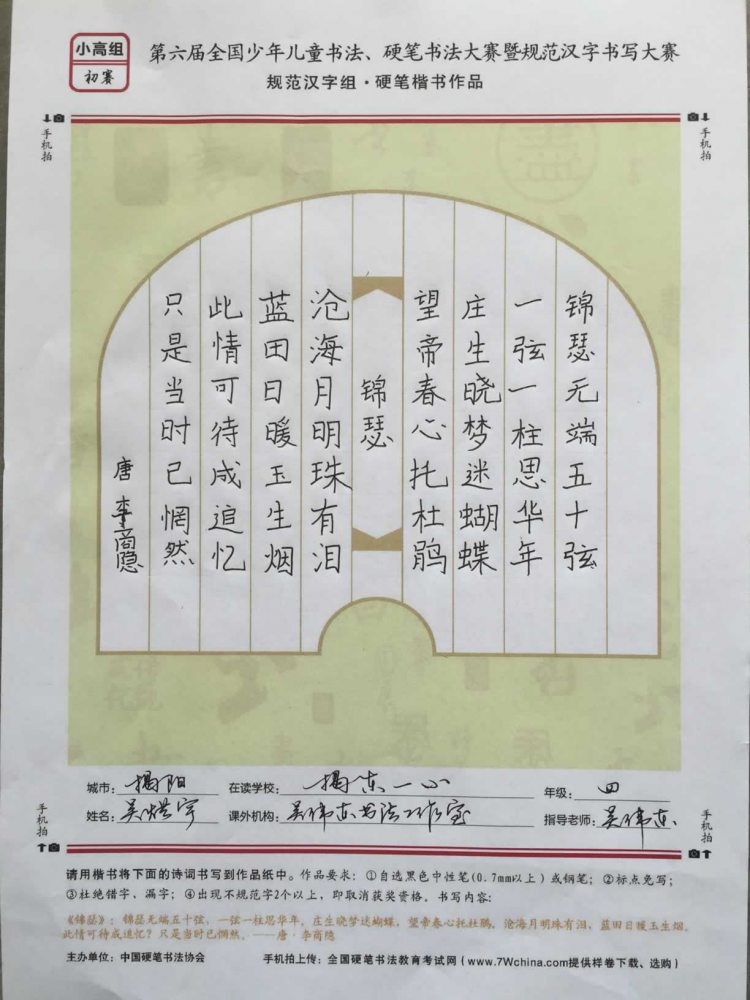 小高组
初赛
第六届全国少年儿童书法、硬笔书法大赛暨规范汉字书写大赛
规范汉字组·硬笔楷书作品
手机拍
手机拍
锦瑟无端五十弦
一弦一柱思华年
庄生晓梦迷蝴蝶
望帝春心托杜鹃
锦瑟
沧海月明珠有泪
蓝田日暖玉生烟
此情可待成追忆
只是当时已惘然
唐 李商隐
城市：揭阳 在读学校：揭东一小 年级：四
姓名：吴烘宇 课外机构：吴伟东书法工作室 指导老师：吴伟东
手机拍
手机拍
请用楷书将下面的诗词书写到作品纸中。作品要求：①自选黑色中性笔(0.7mm以上)或钢笔；②标点免写；
③杜绝错字、漏字；④出现不规范字2个以上，即取消获奖资格。书写内容：
《锦瑟》：锦瑟无端五十弦，一弦一柱思华年。庄生晓梦迷蝴蝶，望帝春心托杜鹃。沧海月明珠有泪，蓝田日暖玉生烟。
此情可待成追忆？只是当时已惘然。——唐·李商隐
主办单位：中国硬笔书法协会 手机拍上传：全国硬笔书法教育考试网（www.7Wchina.com提供样卷下载、选购）